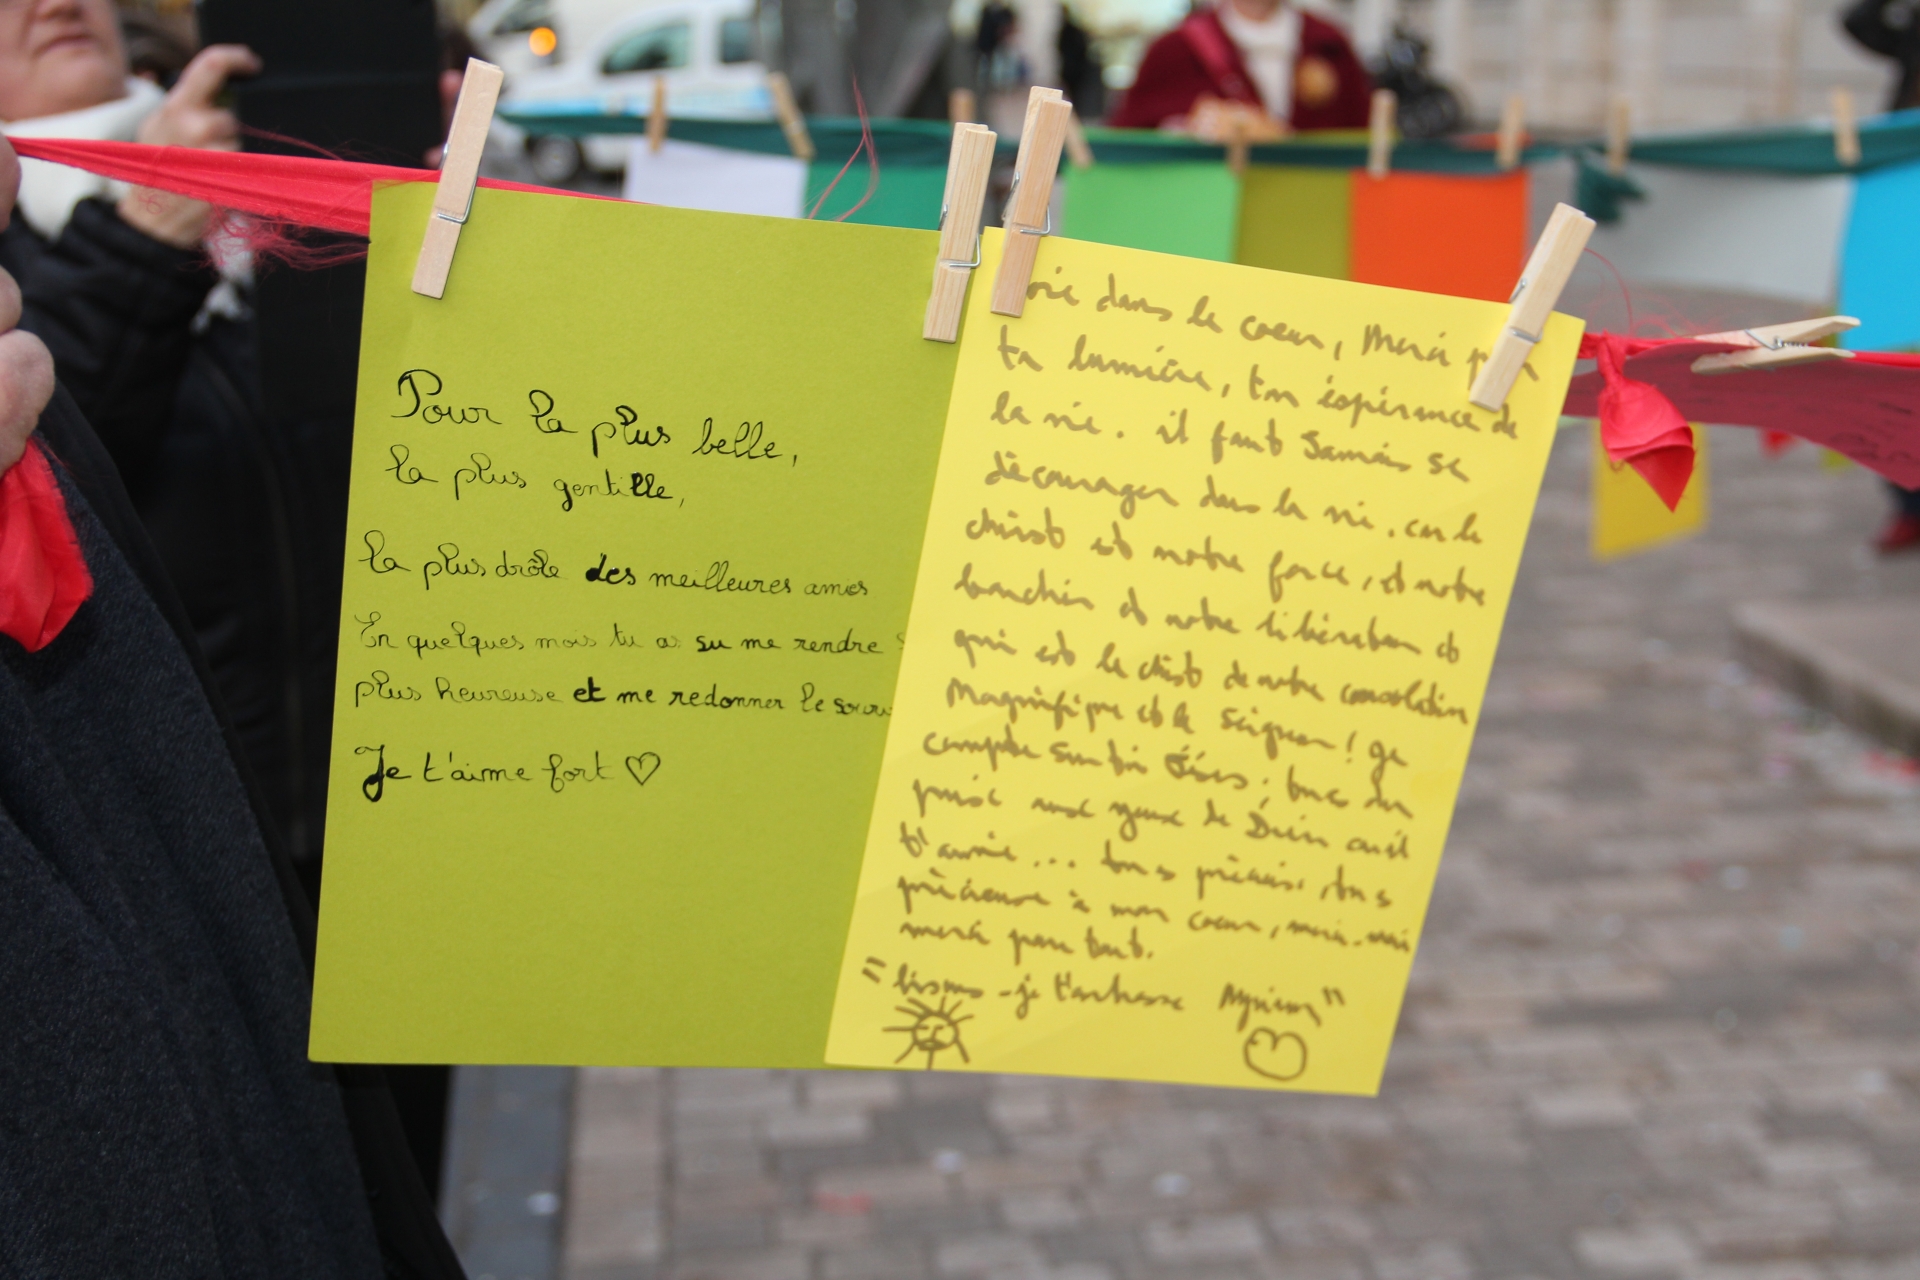 Pour la plus belle,
la plus gentille,
la plus drôle des meilleures amies
En quelques mois tu as su me rendre
plus heureuse et me redonner le
Je t'aime fort ♡
dans le coeur, Merci
ta lumière, ton espérance de
la vie. il faut Jamais se
décourager dans la vie. car le
christ est notre force, et notre
bouclier et notre libération et
qui est le christ de notre consolation
Magnifique est le Seigneur! Je
compte sur toi Jésus;
aux yeux de Dieu
t'aime... précieux
précieuse à mon coeur, merci. merci
merci pour tout.
"bisous - je t'embrasse Myriam"